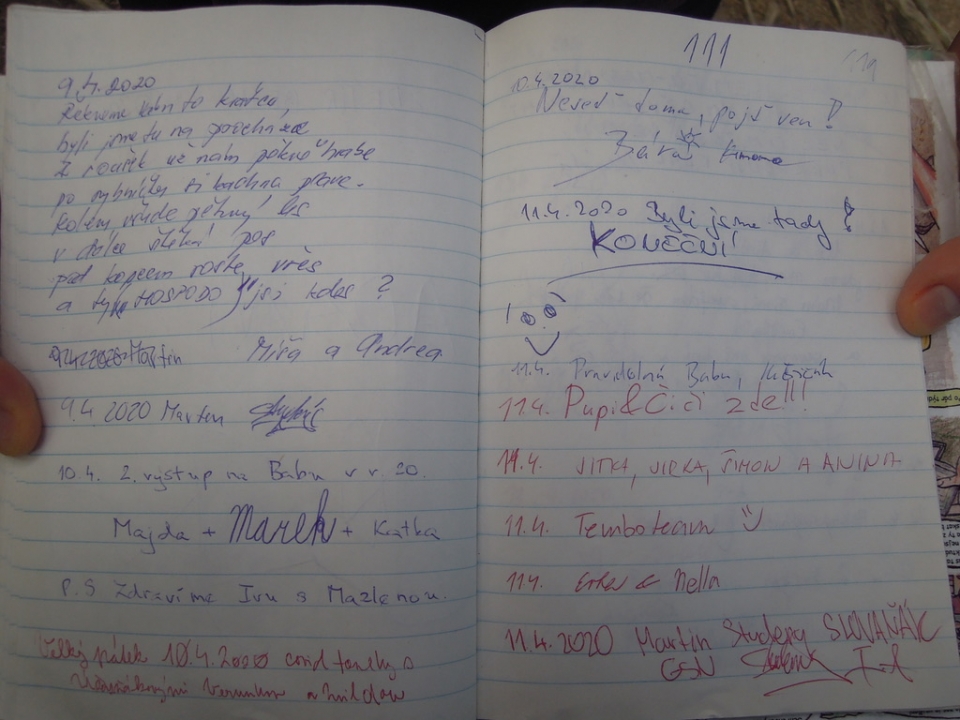 9.4.2020
Řekneme vám to krátce,
byli jsme tu na procházce
Z roušek už nám pěkně hrabe
po rybníčku si kachna plave.
kolem všude pěkný les
v dálce štěká pes
pod kopcem roste vřes
a ty HOSPODO jsi kdes ?
Martin Míša a Andrea
9.4.2020 Martin
10.4. 2. výstup na Babu v r. 20.
Majda + Marek + Katka
P.S Zdravíme Ivu s Mazlenou.
Velký pátek 10.4.2020 covid
111
10.4.2020
Neseď doma, pojď ven !
Bára
11.4.2020 Byli jsme tady !
KONEČNÍ
11.4. Pravidelná Baba,
11.4. Pupi & Čiči zde !!!
11.4. JITKA, JIRKA, ŠIMON A ANINA
11.4. Temboteam
11.4. Nella
11.4.2020 Martin Studený SLOVAŇÁK
GSN